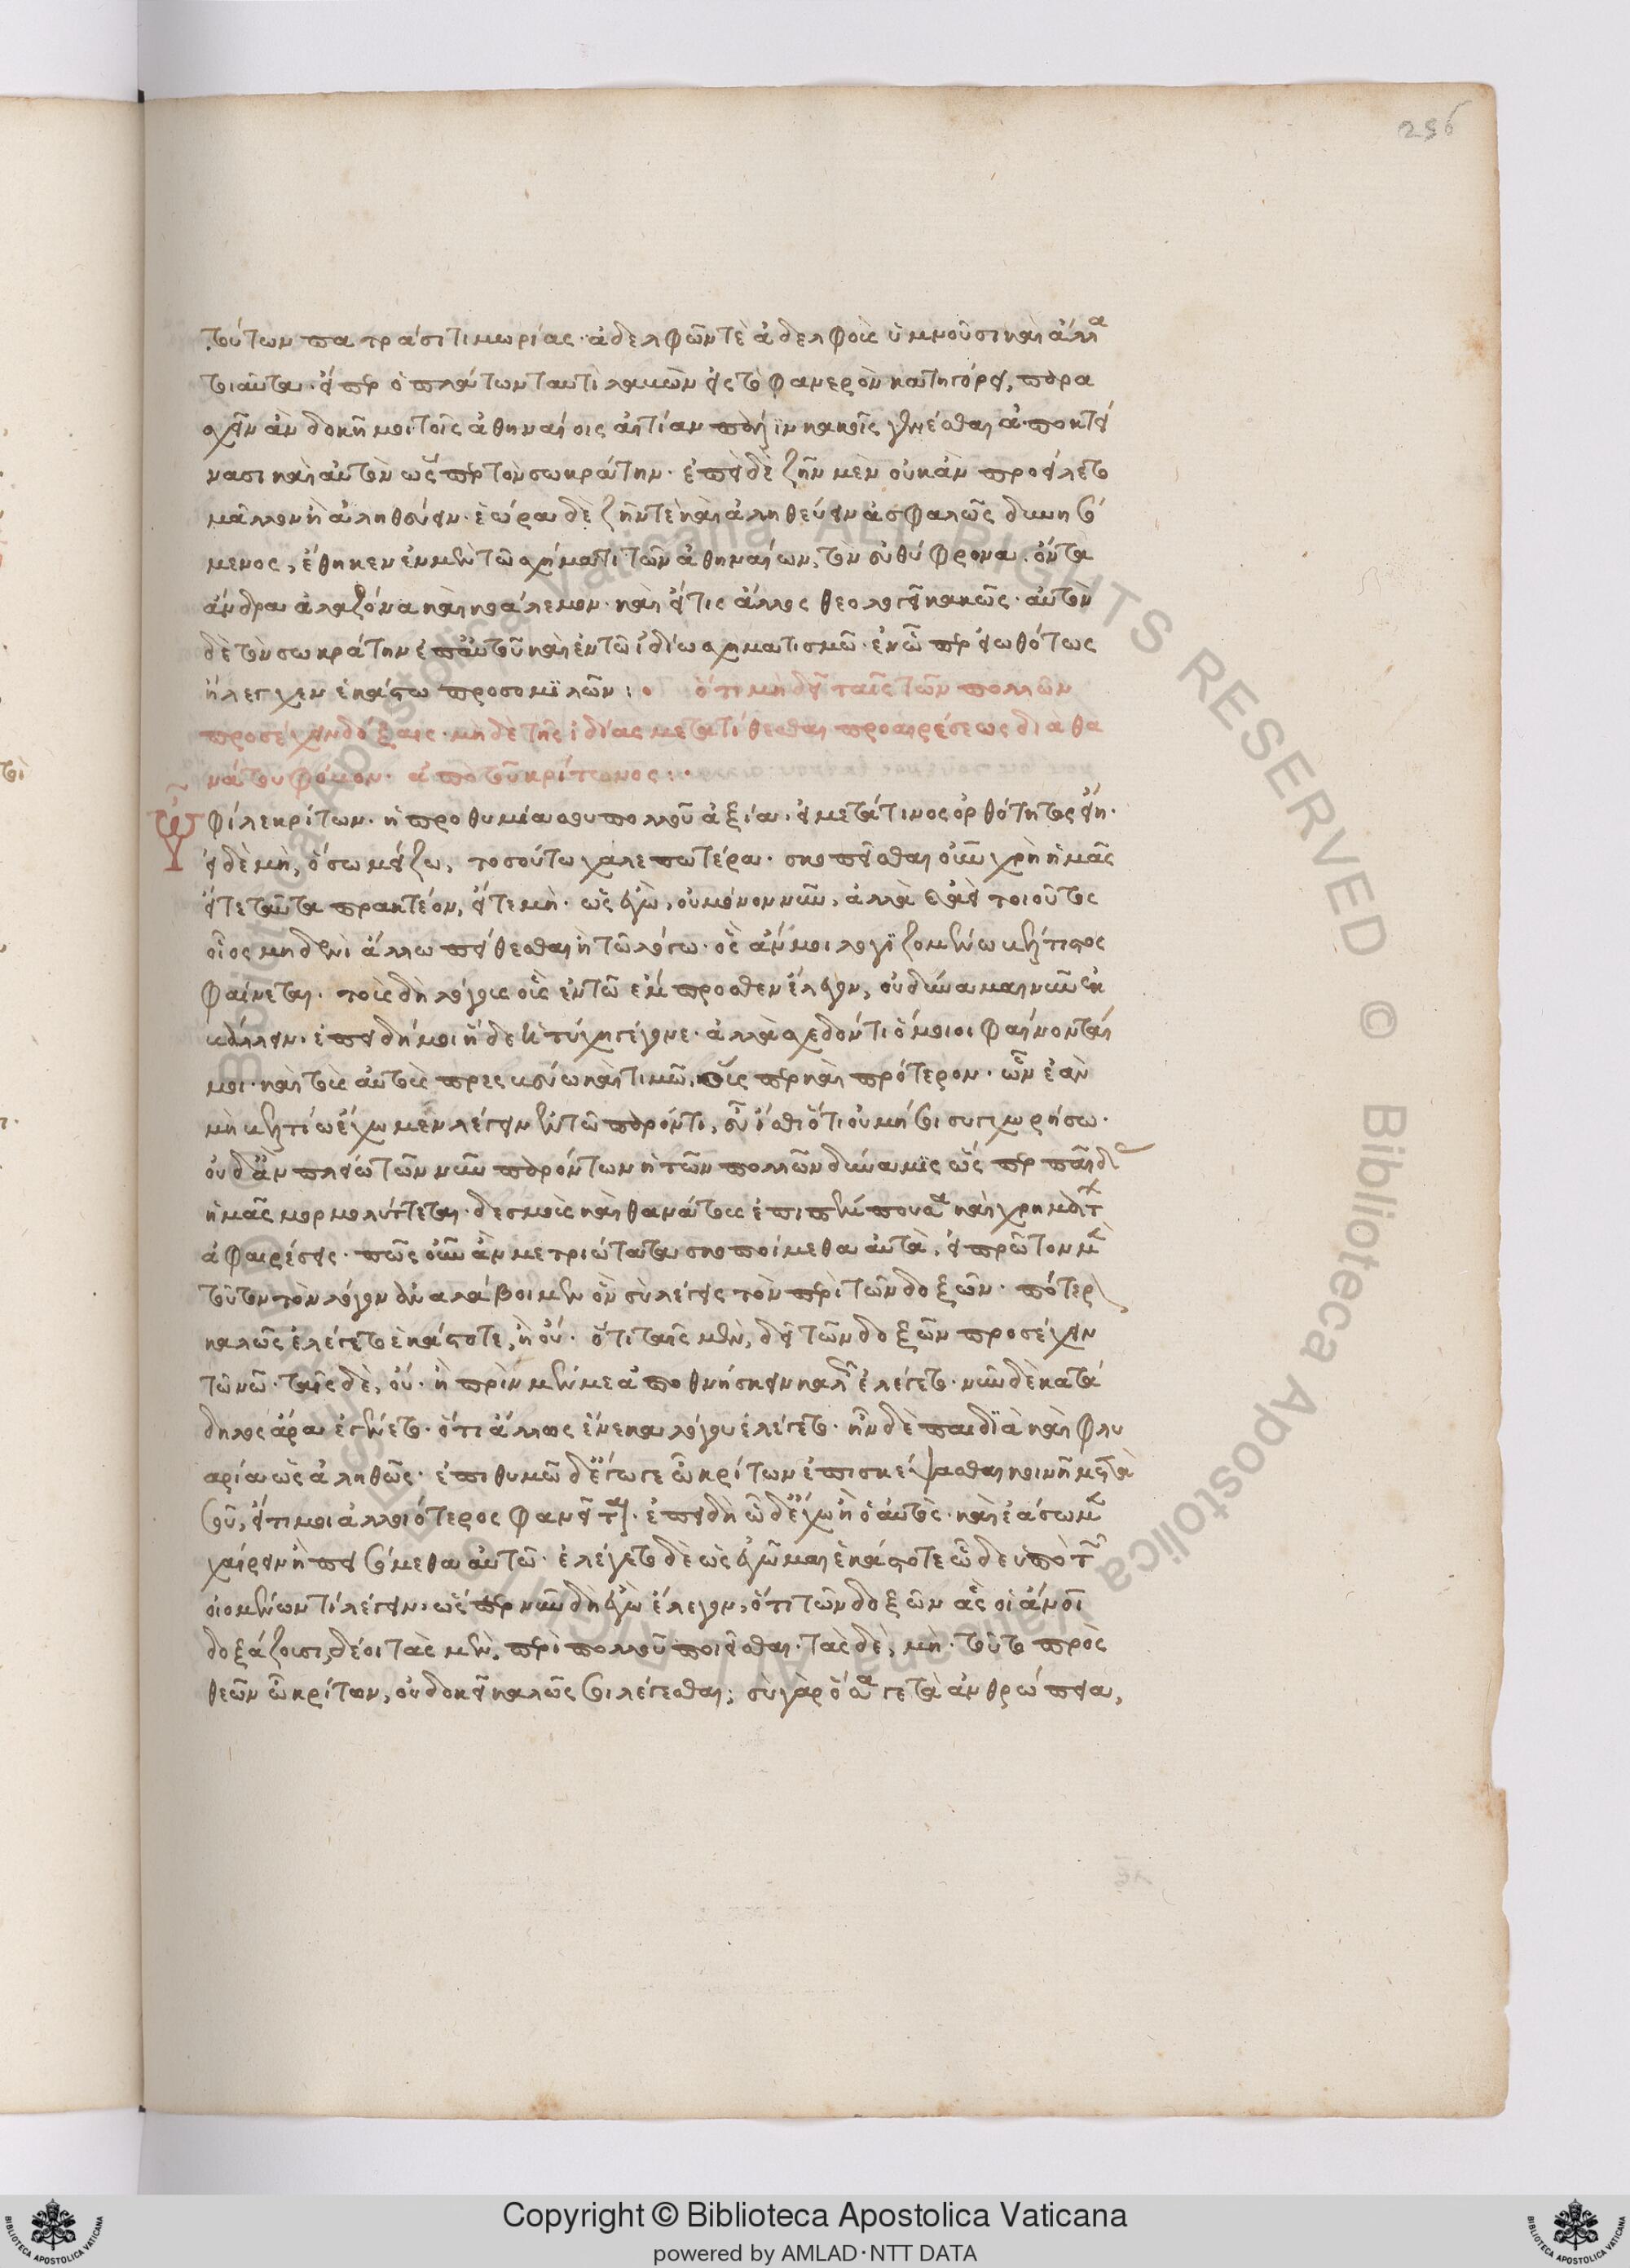 256
τούτων πατράσι τιμωρίας· ἀδελφῶν τὲ ἀδελφοῖς ὑμνοῦσι καὶ ἄλλα
τοιαῦτα. εἴπερ ὁ πλάτων ταυτὶ λαβὼν εἰς τὸ φανερὸν κατηγόρει, παρα
σχεῖν ἂν δοκῇ μοι τοῖς ἀθηναίοις αἰτίαν πάλιν κακοῖς γενέσθαι ἀποκτεί
νασι καὶ αὐτὸν ὥσπερ τὸν σωκράτην. ἐπεὶ δὲ ζῆν μὲν οὐκ ἂν προείλετο
μᾶλλον ἢ ἀληθεύειν. ἑώρα δὲ ζῆν τὲ καὶ ἀληθεύειν ἀσφαλῶς δυνησό
μενος, ἔθηκεν ἐν μὲν τῶ σχήματι τῶν ἀθηναίων, τὸν εὐθύφρονα. ὄντα
ἄνδρα ἀλαζόνα καὶ κοάλεμον. καὶ εἴ τις ἄλλος θεολογεῖ κακῶς. αὐτὸν
δὲ τὸν σωκράτην ἐπ' αὐτοῦ καὶ ἐν τῶ ἰδίω σχηματισμῶ. ἐν ὧπερ εἰωθότως
ἤλεγχεν ἑκάστω προσομιλῶν: ὅτι μὴ δεῖ ταῖς τῶν πολλῶν
προσέχειν δόξαις. μὴ δὲ τῆς ἰδίας μετατίθεσθαι προαιρέσεως διὰ θα
νάτου φόβον. ἀπὸ τοῦ κρίτωνος:
Ὦ φίλε κρίτων. ἡ προθυμία σου πολλοῦ ἀξία. εἰ μετά τινος ὀρθότητος εἴη.
εἰ δὲ μὴ, ὅσω μείζω, τοσούτω χαλεπωτέρα. σκοπεῖσθαι οὖν χρὴ ἡμᾶς
εἴτε ταῦτα πρακτέον, εἴτε μή. ὡς ἐγὼ, οὐ μόνον νῦν, ἀλλὰ καὶ ἀεὶ τοιοῦτος
οἷος μηδενὶ ἄλλω πείθεσθαι ἢ τῶ λόγω. ὃς ἄν μοι λογιζομένω βέλτιστος
φαίνεται. τοὺς δὴ λόγους οὓς ἐν τῶ ἔμπροσθεν ἔλεγον, οὐ δύναμαι νῦν ἐκ
βάλλειν. ἐπειδή μοι ἥδε ἡ τύχη γέγονε. ἀλλὰ σχεδόν τι ὅμοιοι φαίνονταί
μοι. καὶ τοὺς αὐτοὺς πρεσβεύω καὶ τιμῶ, οὕσπερ καὶ πρότερον. ὧν ἐὰν
μὴ βελτίω ἔχωμεν λέγειν ἐν τῶ παρόντι, εὖ ἴσθι ὅτι οὐ μή σοι συγχωρήσω.
οὐδ' ἂν πλείω τῶν νῦν παρόντων ἡ τῶν πολλῶν δύναμις ὥσπερ παῖδας
ἡμᾶς μορμολύττεται. δεσμοὺς καὶ θανάτους ἐπιπέμπουσα καὶ χρημάτων
ἀφαιρέσεις. πῶς οὖν ἂν μετριώτατα σκοποίμεθα αὐτά. εἰ πρῶτον μὲν
τοῦτον τὸν λόγον ἀναλάβοιμεν ὃν σὺ λέγεις τὸν περὶ τῶν δοξῶν. πότερον
καλῶς ἐλέγετο ἑκάστοτε, ἢ οὔ. ὅτι ταῖς μὲν, δεῖ τῶν δοξῶν προσέχειν
τὸν νοῦν. ταῖς δὲ, οὔ. ἢ πρὶν μὲν ἐμὲ ἀποθνήσκειν καλῶς ἐλέγετο. νῦν δὲ κατά
δηλος ἄρα ἐγένετο. ὅτι ἄλλως ἕνεκα λόγου ἐλέγετο. ἦν δὲ παιδιὰ καὶ φλυ
αρία ὡς ἀληθῶς. ἐπιθυμῶ δ' ἔγωγε ὦ κρίτων ἐπισκέψασθαι κοινῇ μετὰ
σοῦ, εἴ τί μοι ἀλλοιότερος φανεῖται. ἐπειδὴ ὧδε ἔχω ἢ ὁ αὐτός. καὶ ἐάσωμεν
χαίρειν ἢ πεισόμεθα αὐτῶ. ἐλέγετο δὲ ὡς ἐγὦμαι ἑκάστοτε ὧδε ὑπὸ τῶν
οἰομένων τὶ λέγειν. ὥσπερ νῦν δὴ ἐγὼ ἔλεγον, ὅτι τῶν δοξῶν ἃς οἱ ἄνοι
δοξάζουσι, δέοι τὰς μὲν, περὶ πολλοῦ ποιεῖσθαι. τὰς δὲ, μή. τοῦτο πρὸς
θεῶν ὦ κρίτων, οὐ δοκεῖ καλῶς σοι λέγεσθαι; σὺ γὰρ ὅσα γε τὰ ἀνθρώπεια,
Copyright © Biblioteca Apostolica Vaticana
powered by AMLAD·NTT DATA